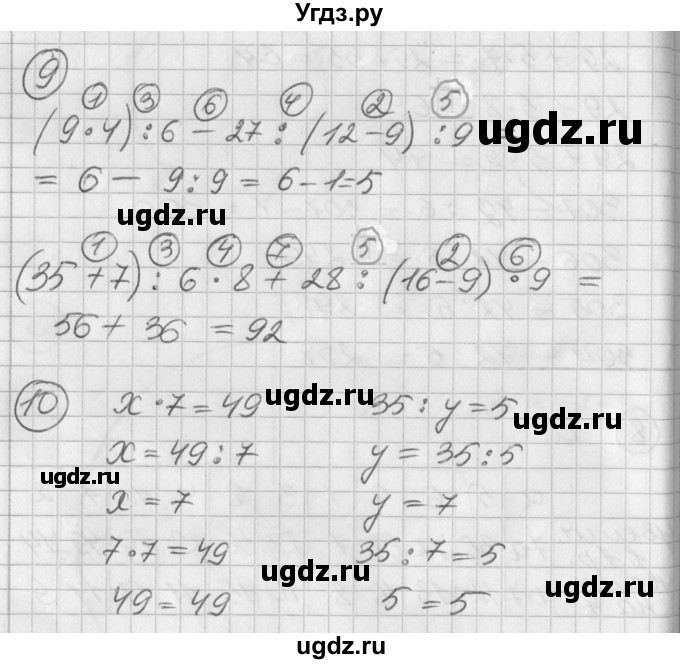 Угдз.ру
9
1 3 6 4 2 5
(9·4):6-27:(12-9):9
ugdz.ru
= 6 - 9:9 = 6-1=5
ugdz.ru
1 3 4 7 5 2 6
(35+7):6·8+28:(16-9)·9 =
ugdz.ru
56+ 36 = 92
10 x·7=49 35:y=5
ugdz.ru ugdz.ru
x=49:7 y=35:5
ugdz.ru
x=7 y=7
7·7=49 35:7=5
ugdz.ru ugdz.ru
49=49 5=5
ugdz.ru